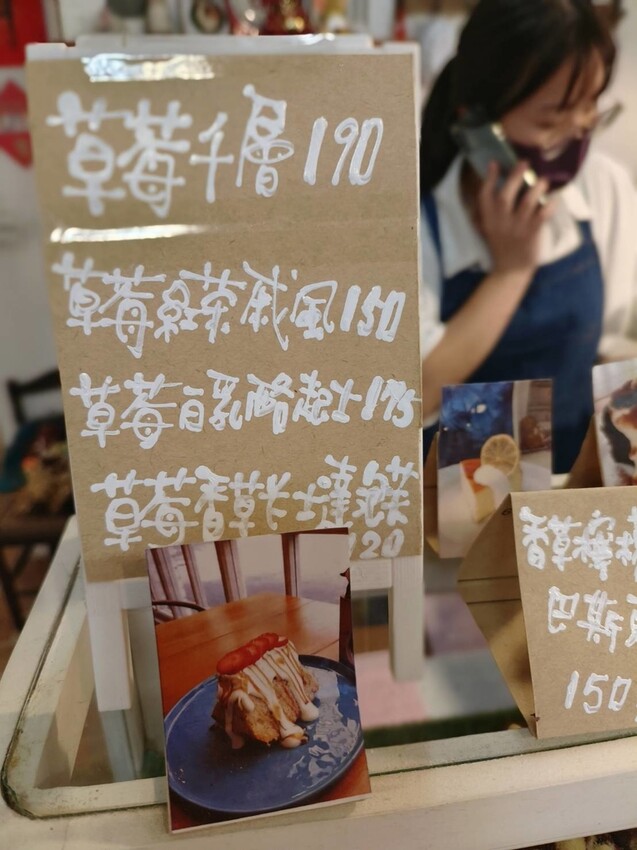 草莓千層190
草莓紅茶戚風150
草莓白乳酪起士175
草莓香草卡士達鬆餅
120
香草
巴斯
150